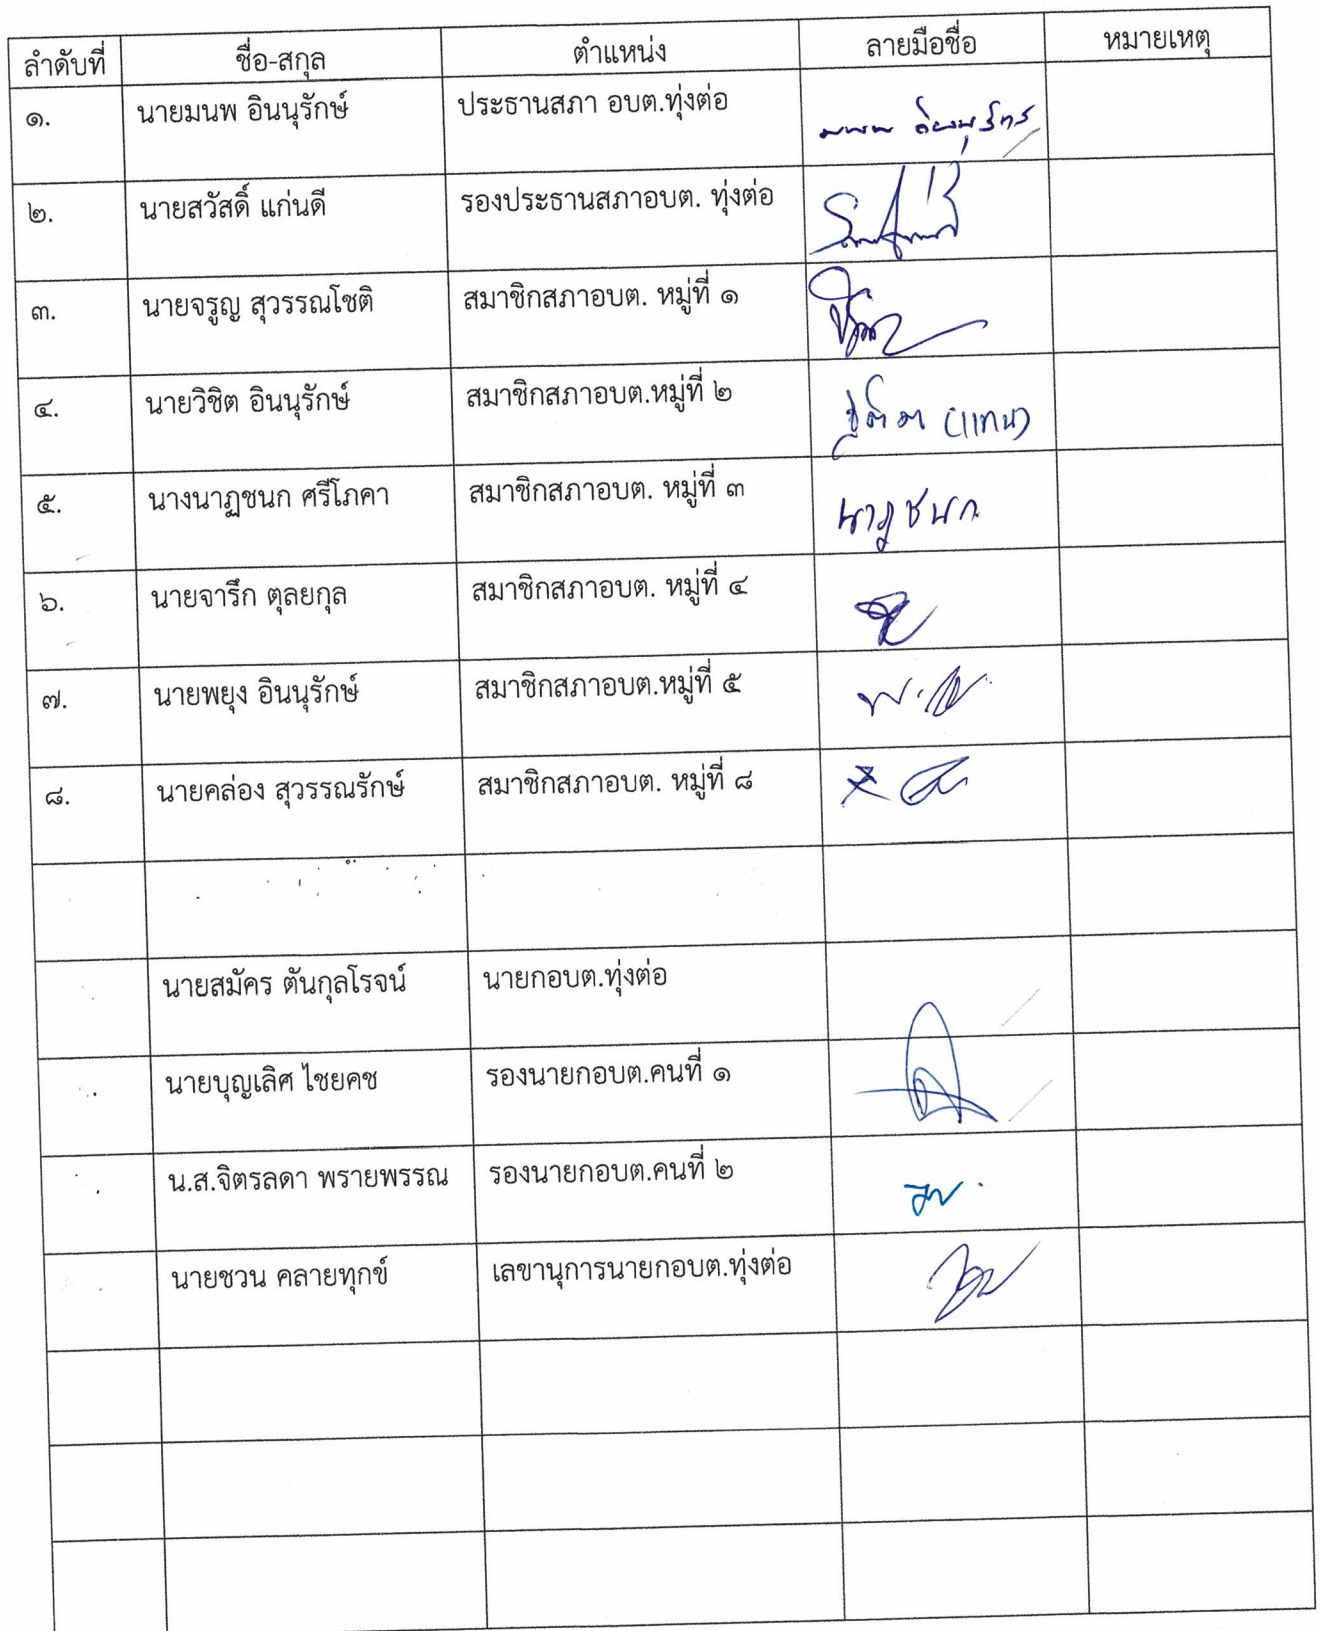 ลำดับที่ ชื่อ-สกุล ตำแหน่ง ลายมือชื่อ หมายเหตุ
๑. นายมนพ อินนุรักษ์ ประธานสภา อบต.ทุ่งต่อ
๒. นายสวัสดิ์ แก่นดี รองประธานสภาอบต. ทุ่งต่อ
๓. นายจรูญ สุวรรณโชติ สมาชิกสภาอบต. หมู่ที่ ๑
๔. นายวิชิต อินนุรักษ์ สมาชิกสภาอบต.หมู่ที่ ๒ (แทน)
๕. นางนาฏชนก ศรีโภคา สมาชิกสภาอบต. หมู่ที่ ๓ นาฏชนก
๖. นายจารึก ตุลยกุล สมาชิกสภาอบต. หมู่ที่ ๔
๗. นายพยุง อินนุรักษ์ สมาชิกสภาอบต.หมู่ที่ ๕
๘. นายคล่อง สุวรรณรักษ์ สมาชิกสภาอบต. หมู่ที่ ๘
นายสมัคร ตันกุลโรจน์ นายกอบต.ทุ่งต่อ
นายบุญเลิศ ไชยคช รองนายกอบต.คนที่ ๑
น.ส.จิตรลดา พรายพรรณ รองนายกอบต.คนที่ ๒
นายชวน คลายทุกข์ เลขานุการนายกอบต.ทุ่งต่อ